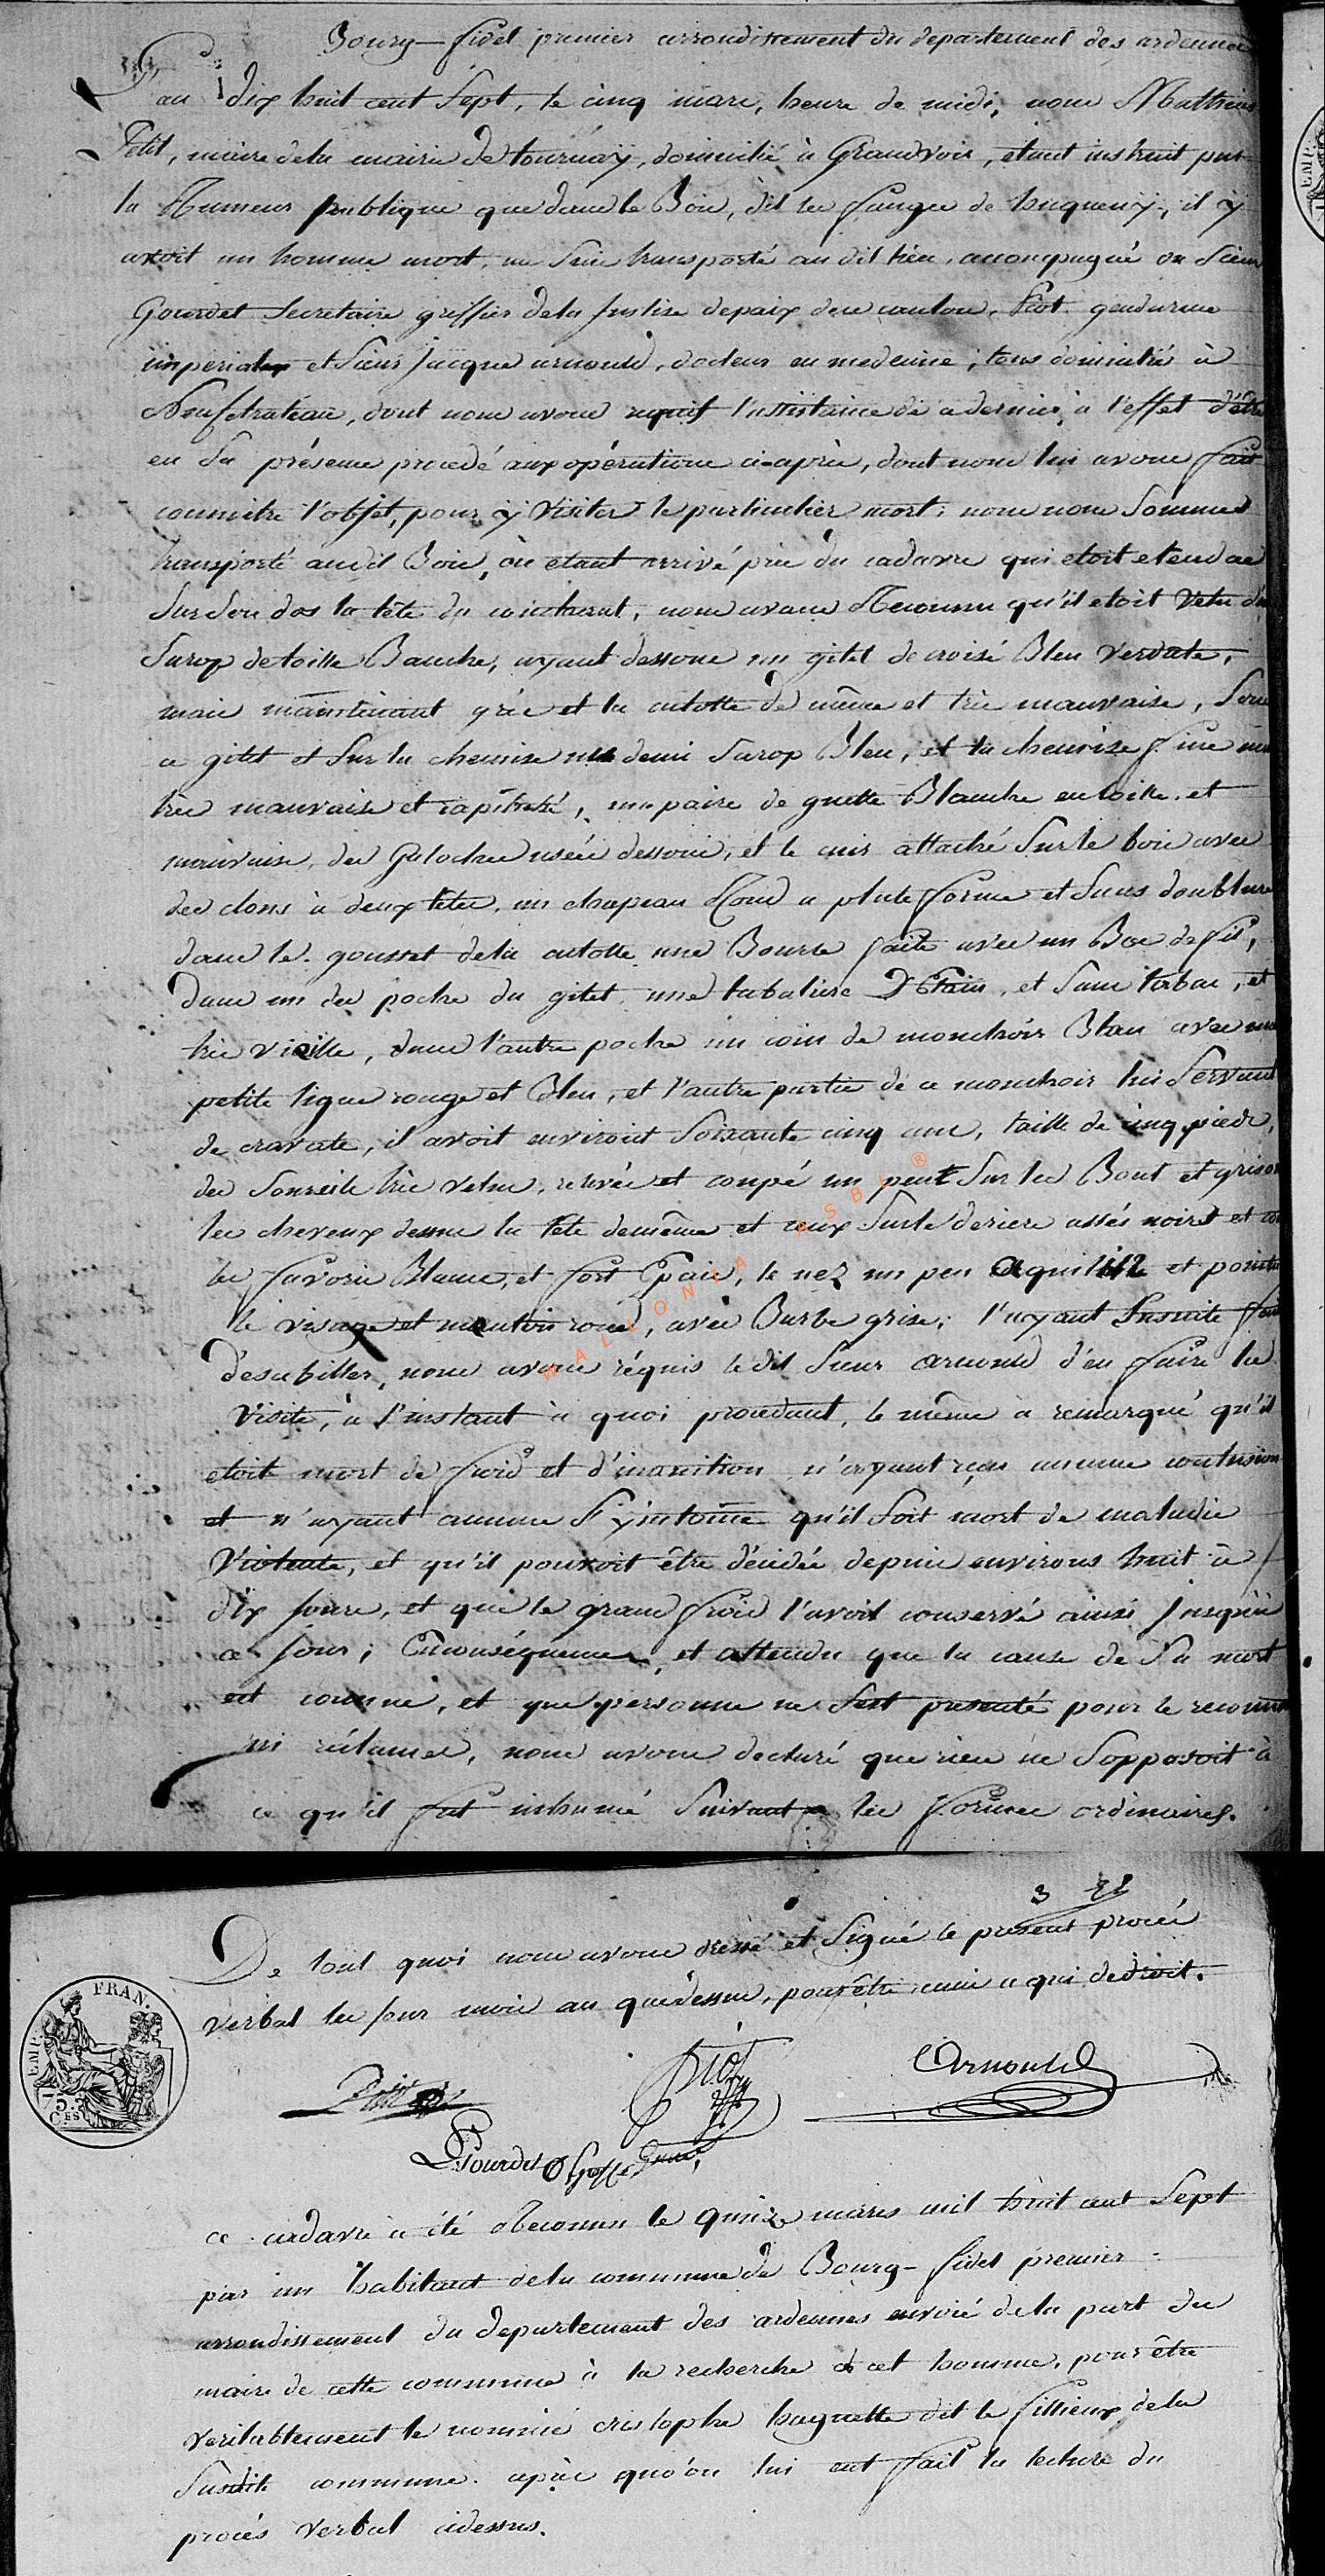 Bourg-fidel premier arrondissement du departement des ardennes
L'an dix huit cent Sept, le cinq mars, heure de midi, nous Mathieu
Petit, maire dela mairie de tournaÿ, domicilié à Grandvoir, etant instruit par
la Rumeur publique que dans le Bois, dit les fanges de huqueniÿ, il ÿ
avoit un homme mort, me suis transporté au dit lieu, accompagné du Sieur
Gourdet Secretaire greffier dela Justice depaix de ce canton, Piot gendarme
imperiale et Sieur Jacque arnould, docteur en medecine, tous domicilié à
Neufchateau, dont nous avons requis l'assistance de ce dernier, à l'effet d'être
en Sa présence procedé aux opérations ci-après, dont nous lui avons fait
connoitre l'objet, pour ÿ Visiter le particulier mort, nous nous Sommes
transporté audit Bois, où etant arrivé près du cadavre qui etoit etendue
Sur Son dos la tête du couchant, nous avons Reconnu qu'il etoit Vetu d'un
Surop de toille Bauche, ayant dessous un gilet de croisé Bleu Verdate,
mais maintenant gris et la culotte de même et très mauvaise, Sous
ce gilet et Sur la chemise un demi Surop Bleu, et la chemise fine mais
très mauvaise et rapiécté, une paire de guette Blanche en toille, et
mauvaise, des Galoches usées dessous, et le cuir attaché Sur le bois avec
des clous à deux têtes, un chapeau Rond a plate forme et Sans doublure
dans le gousset dela culotte une Bourse faite avec un Bas de fil,
Dans un des poche du gilet, une tabatière D'Etain, et Sans tabac, et
très vieille, dans l'autre poche un coin de mouchoir Blanc avec une
petite ligne rouge et Bleu, et l'autre partie de ce mouchoir lui Servant
de cravate, il avoit environt Soixante cinq ans, taille de cinq pieds,
des Sourcils très velus, relevés et coupé un peut Sur les Bout et grison
les cheveux dessus la tête demême et ceux Surle deriere assés noirs et
les favoris Blancs, et fort Epais, le nez un peu aquilin et pointu
le visage et menton rond, avec Barbe grise; l'ayant Ensuite fait
desabiller, nous avons réquis ledit Sieur arnould d'en faire la
Visite, à l'instant à quoi procedant, le même à remarqué qu'il
etoit mort de froid et d'inanition n'ayant reçu aucune contusion
et n'ayant aucune Sÿmtome qu'il Soit mort de maladie
Violente, et qu'il pouvoit être décédée depuis environs huit à
dix jours, et que le grand froid l'avoit conservé ainsi jusqu'à
ce jour; Enconséquence, et attendu que la cause de Sa mort
est connue, et que personne ne Sest presenté pour le reconnoitre
ni réclamer, nous avons declaré que rien ne Sopposoit à
ce qu'il fut inhumé Suivant les formes ordinaires.
3
De tout quoi nous avons dressé et Signé le present procès
verbal les jour mois an quedessus, pour être remis a qui dedroit.
FRAN.
EMP.
75.
C.ES
Petit
Piot
Arnould
Gourdet Greffier
ce cadavre à été Reconnu le quinze mars mil huit cent Sept
par un habitant dela commune de Bourg-fidel premier
arrondissement du departement des ardennes envoié dela part du
maire de cette commune à la recherche de cet homme, pour être
veritablement le nommé cristophe huguette dit le fillieux dela
Susdite commune. après quo'on lui eut fait la lecture du
procés verbal cidessus.
WALLONIA ASBL ®